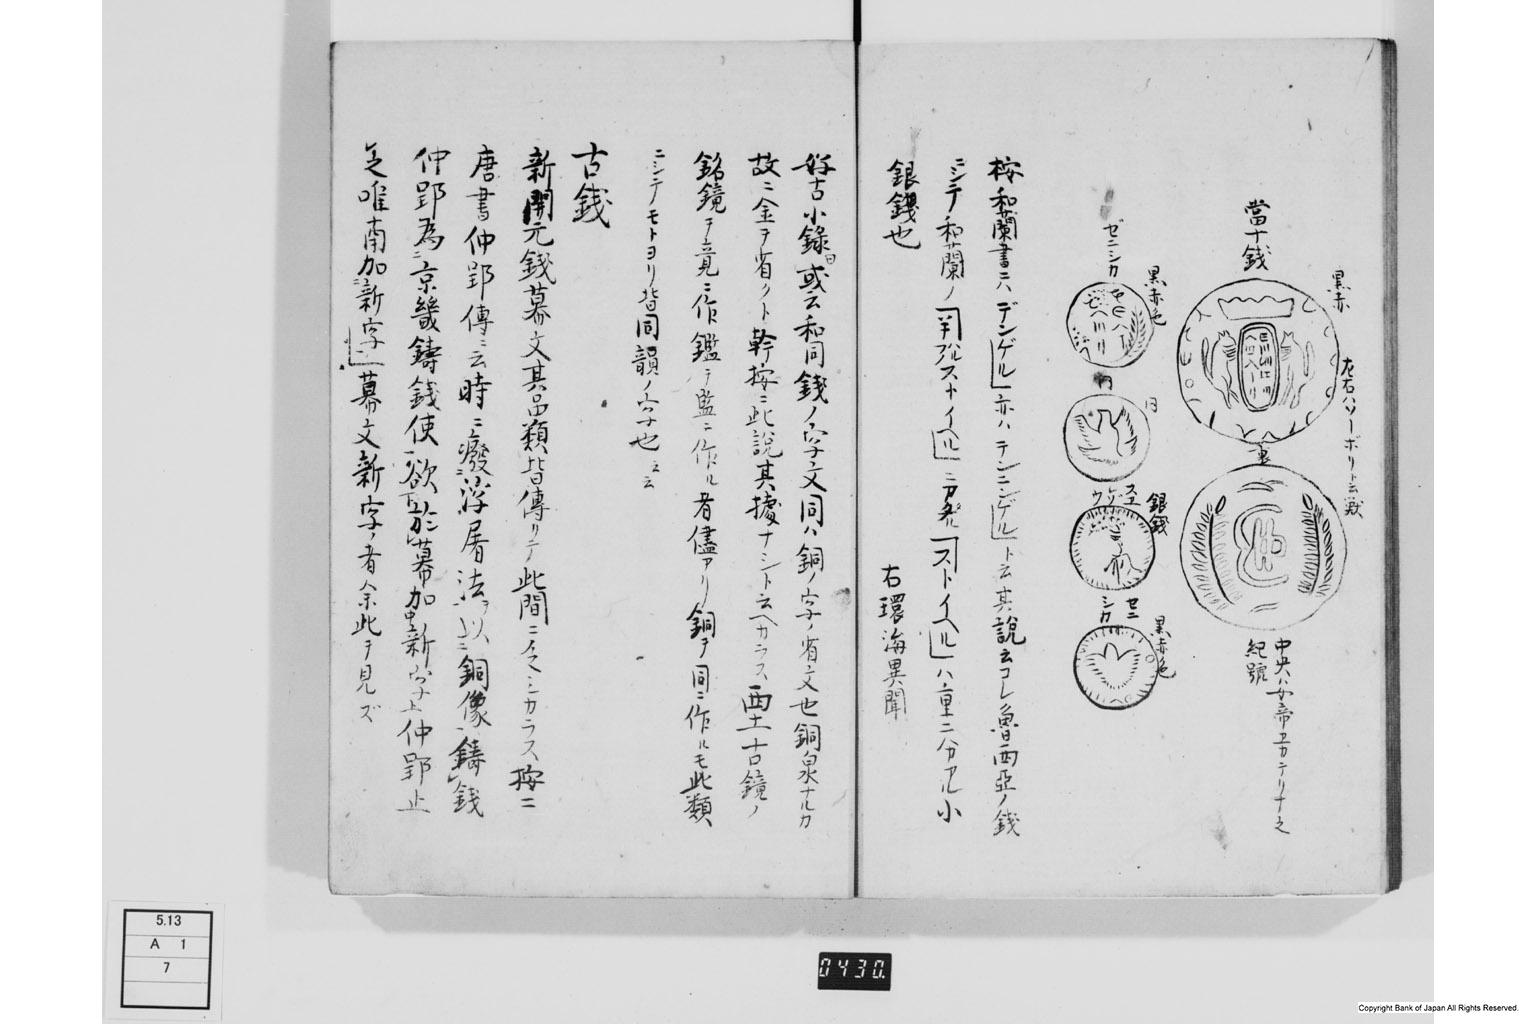 黒赤
當十銭
左右ハソーボリト云獣
裏
中央ハ女帝
紀號
黒赤色
ゼニシカ
銀銭
黒赤色
ゼニ
シカ
按和蘭書ニハデンゲル亦ハテンニンゲルト云其説云コレ魯西亞ノ銭
ニシテ和蘭ノ
ストイヘルハ重二分
小
銀銭也
右環海異聞
好古小錄曰或云和同銭ノ字文同ハ銅ノ字ノ省文也銅泉ナルカ
故ニ金ヲ省クト幹按ニ此説其據ナシト云ヘカラス西土古鏡ノ
銘鏡ヲ竟ニ作鑑ヲ監ニ作ル者儘アリ銅ヲ同ニ作ルモ此類
ニシテモトヨリ皆同韻ノ字也云云
古銭
新開元銭幕文其品類皆傳リテ此間ニ乏シカラス按ニ
唐書仲郢傳ニ云時ニ癈浮屠法ヲ以銅像鋳銭
仲郢為京畿鋳銭使欲於幕加新字上仲郢止
之唯南加新字幕文新字ノ者余此ヲ見ズ
5.13
A 1
7
0430.
Copyright Bank of Japan All Rights Reserved.